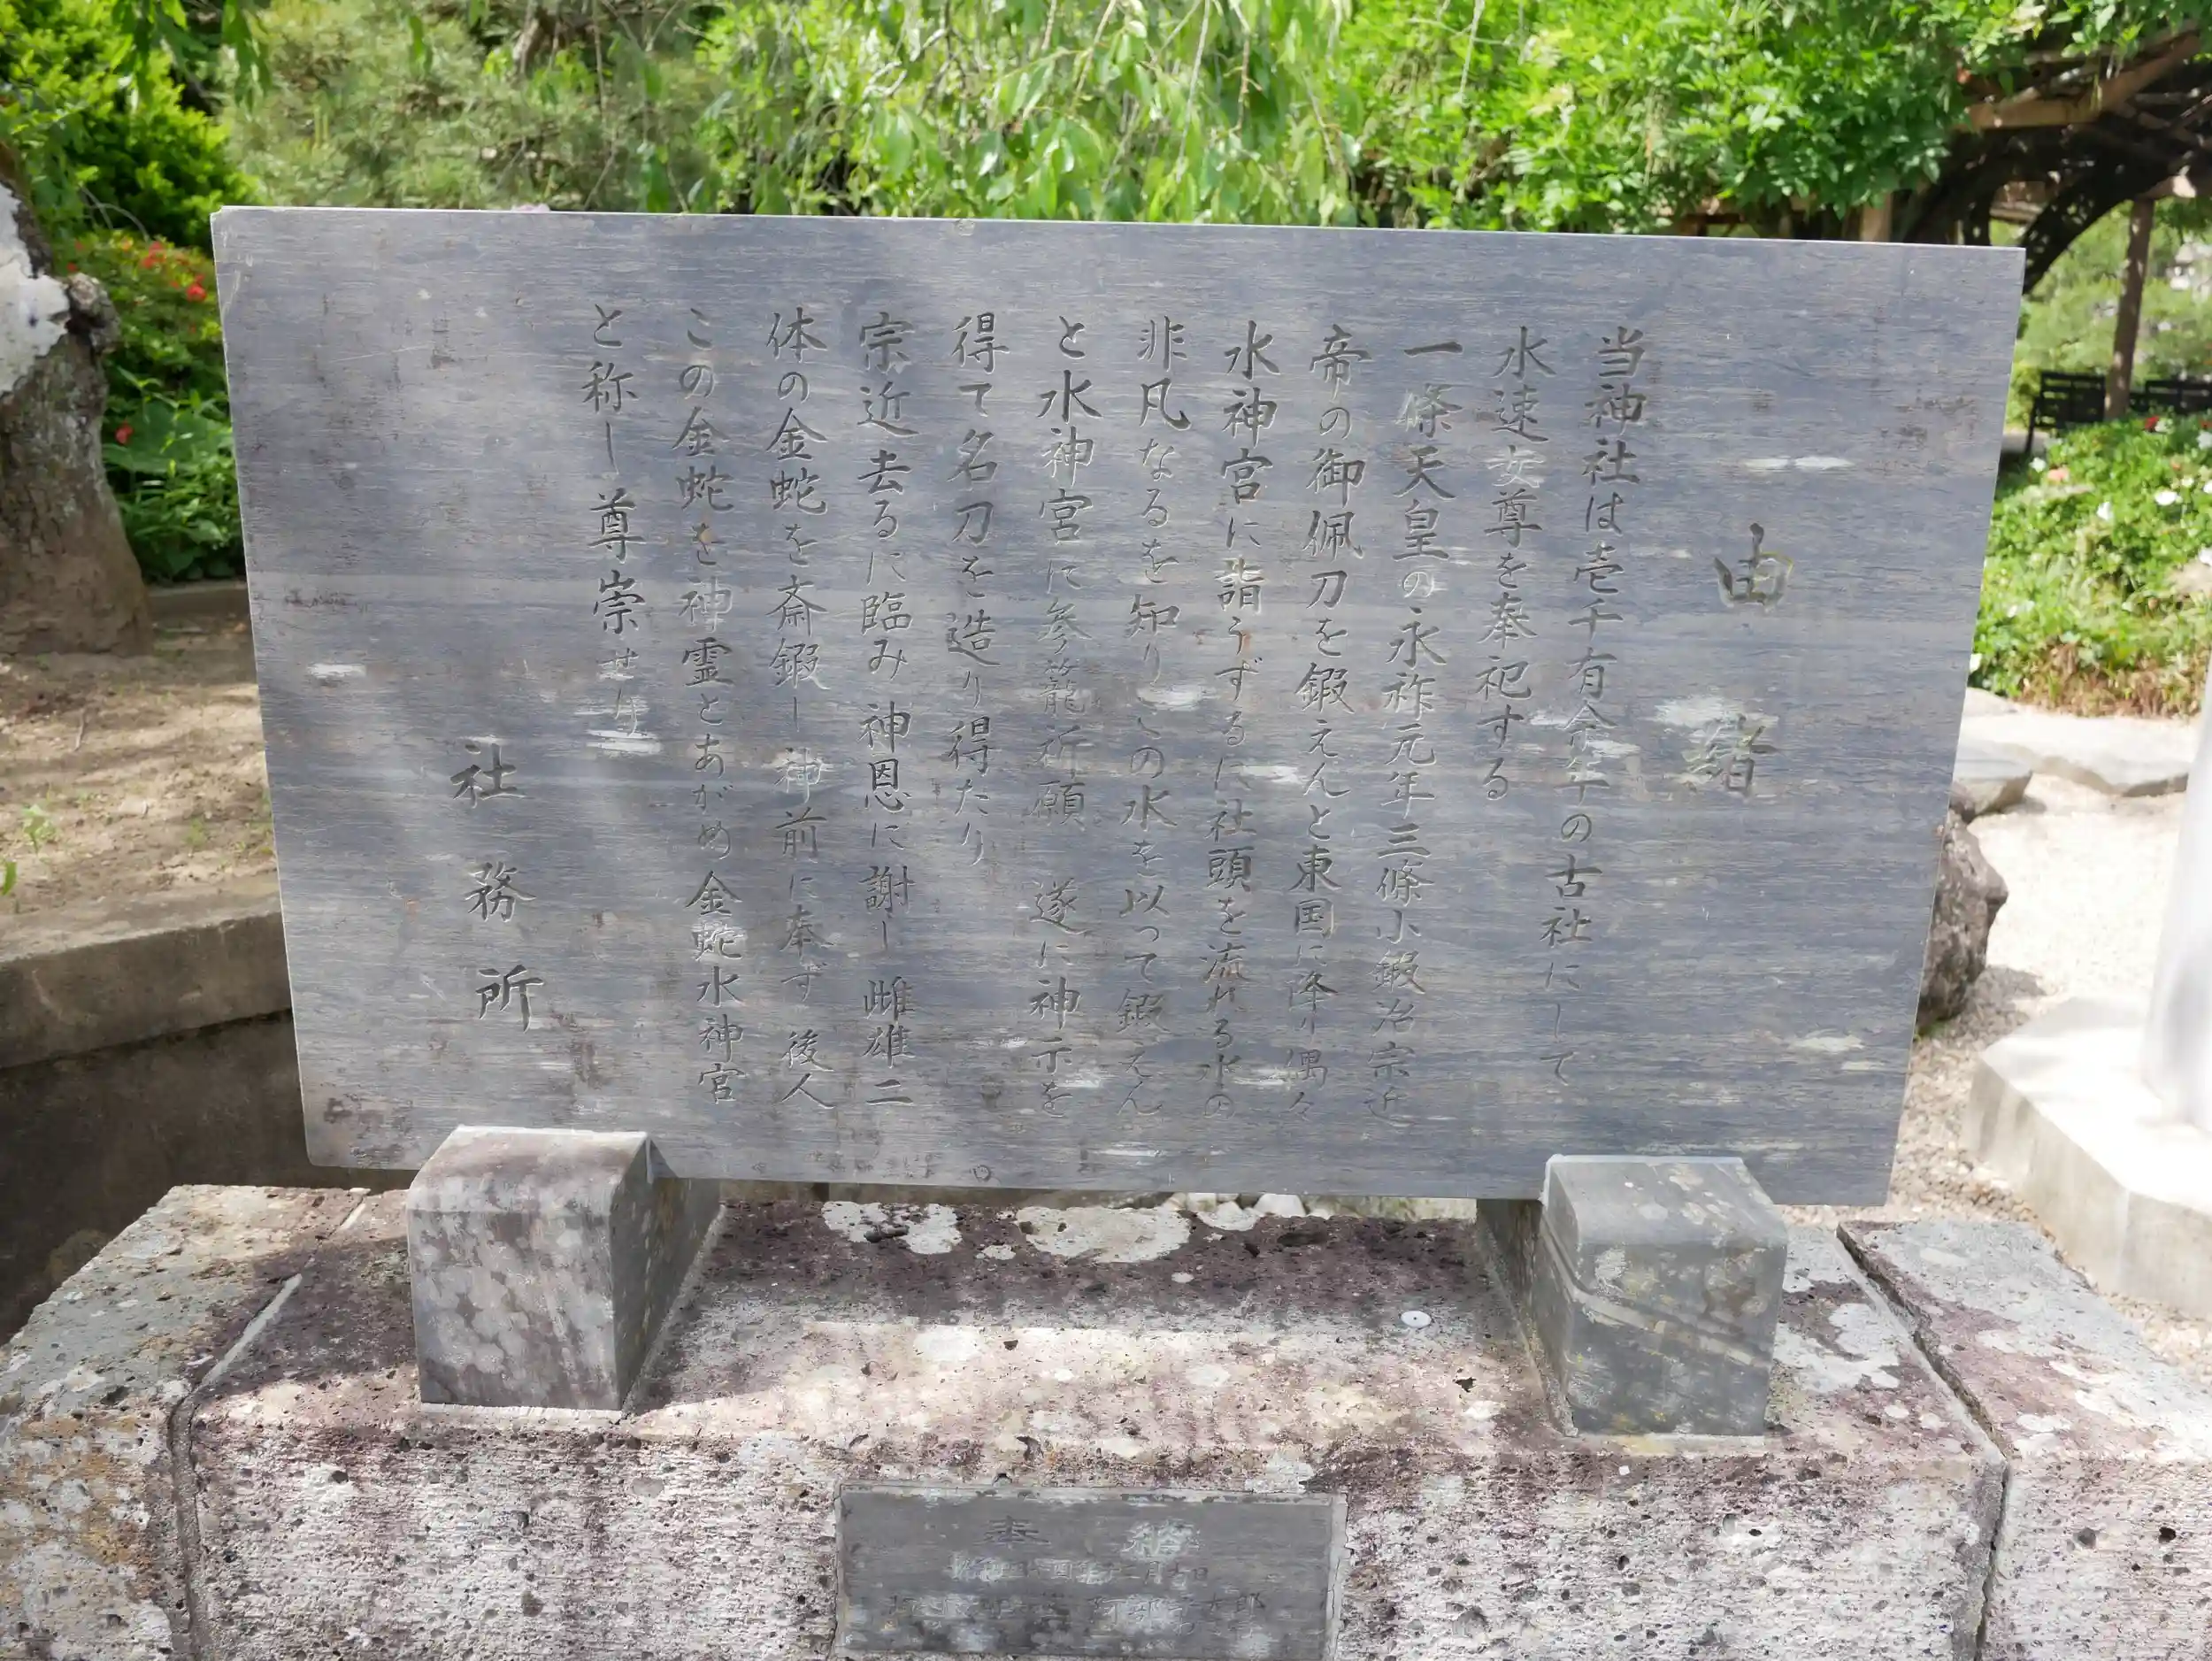 由緒
当神社は壱千有余年の古社にして
水速女尊を奉祀する
一條天皇の永祚元年三條小鍛冶宗近
帝の御佩刀を鍛えんと東国に降り偶々
水神宮に詣うずるに社頭を流れる水の
非凡なるを知りこの水を以って鍛えん
と水神宮に参籠祈願 遂に神示を
得て名刀を造り得たり
宗近去るに臨み神恩に謝し 雌雄二
体の金蛇を斎鍛し 神前に奉ず 後人
この金蛇を神霊とあがめ金蛇水神宮
と称し尊崇せり
社務所
奉納